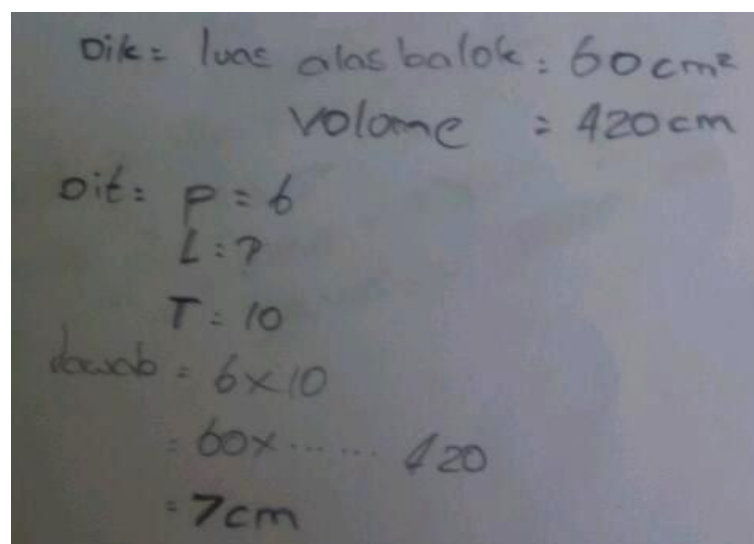 Dik = luas alas balok = 60 cm²
Volome = 420 cm
Dit = P = 6
L = ?
T = 10
Jawab = 6 x 10
= 60 x ...... 420
= 7 cm